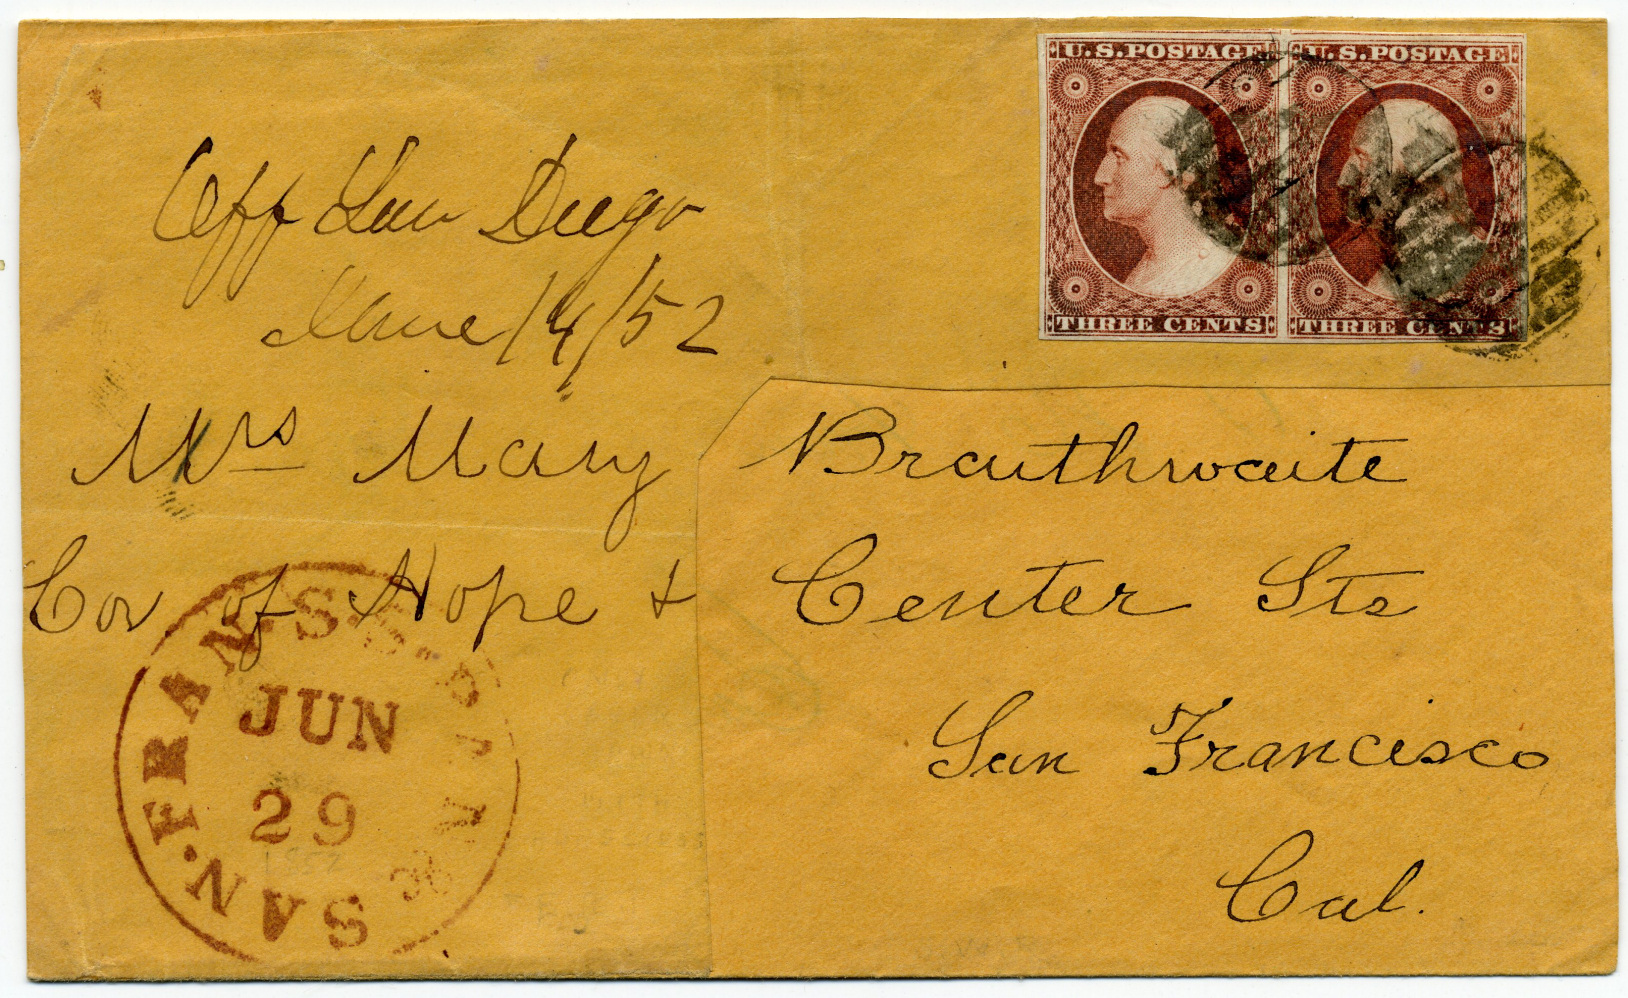 U.S. POSTAGE U.S. POSTAGE
THREE CENTS THREE CENTS
Off San Diego
June 14/52
Mrs Mary Brauthwaite
Cor of Hope & Center Sts
San Francisco
Cal.
SAN. FRAN. S
JUN
29
1852